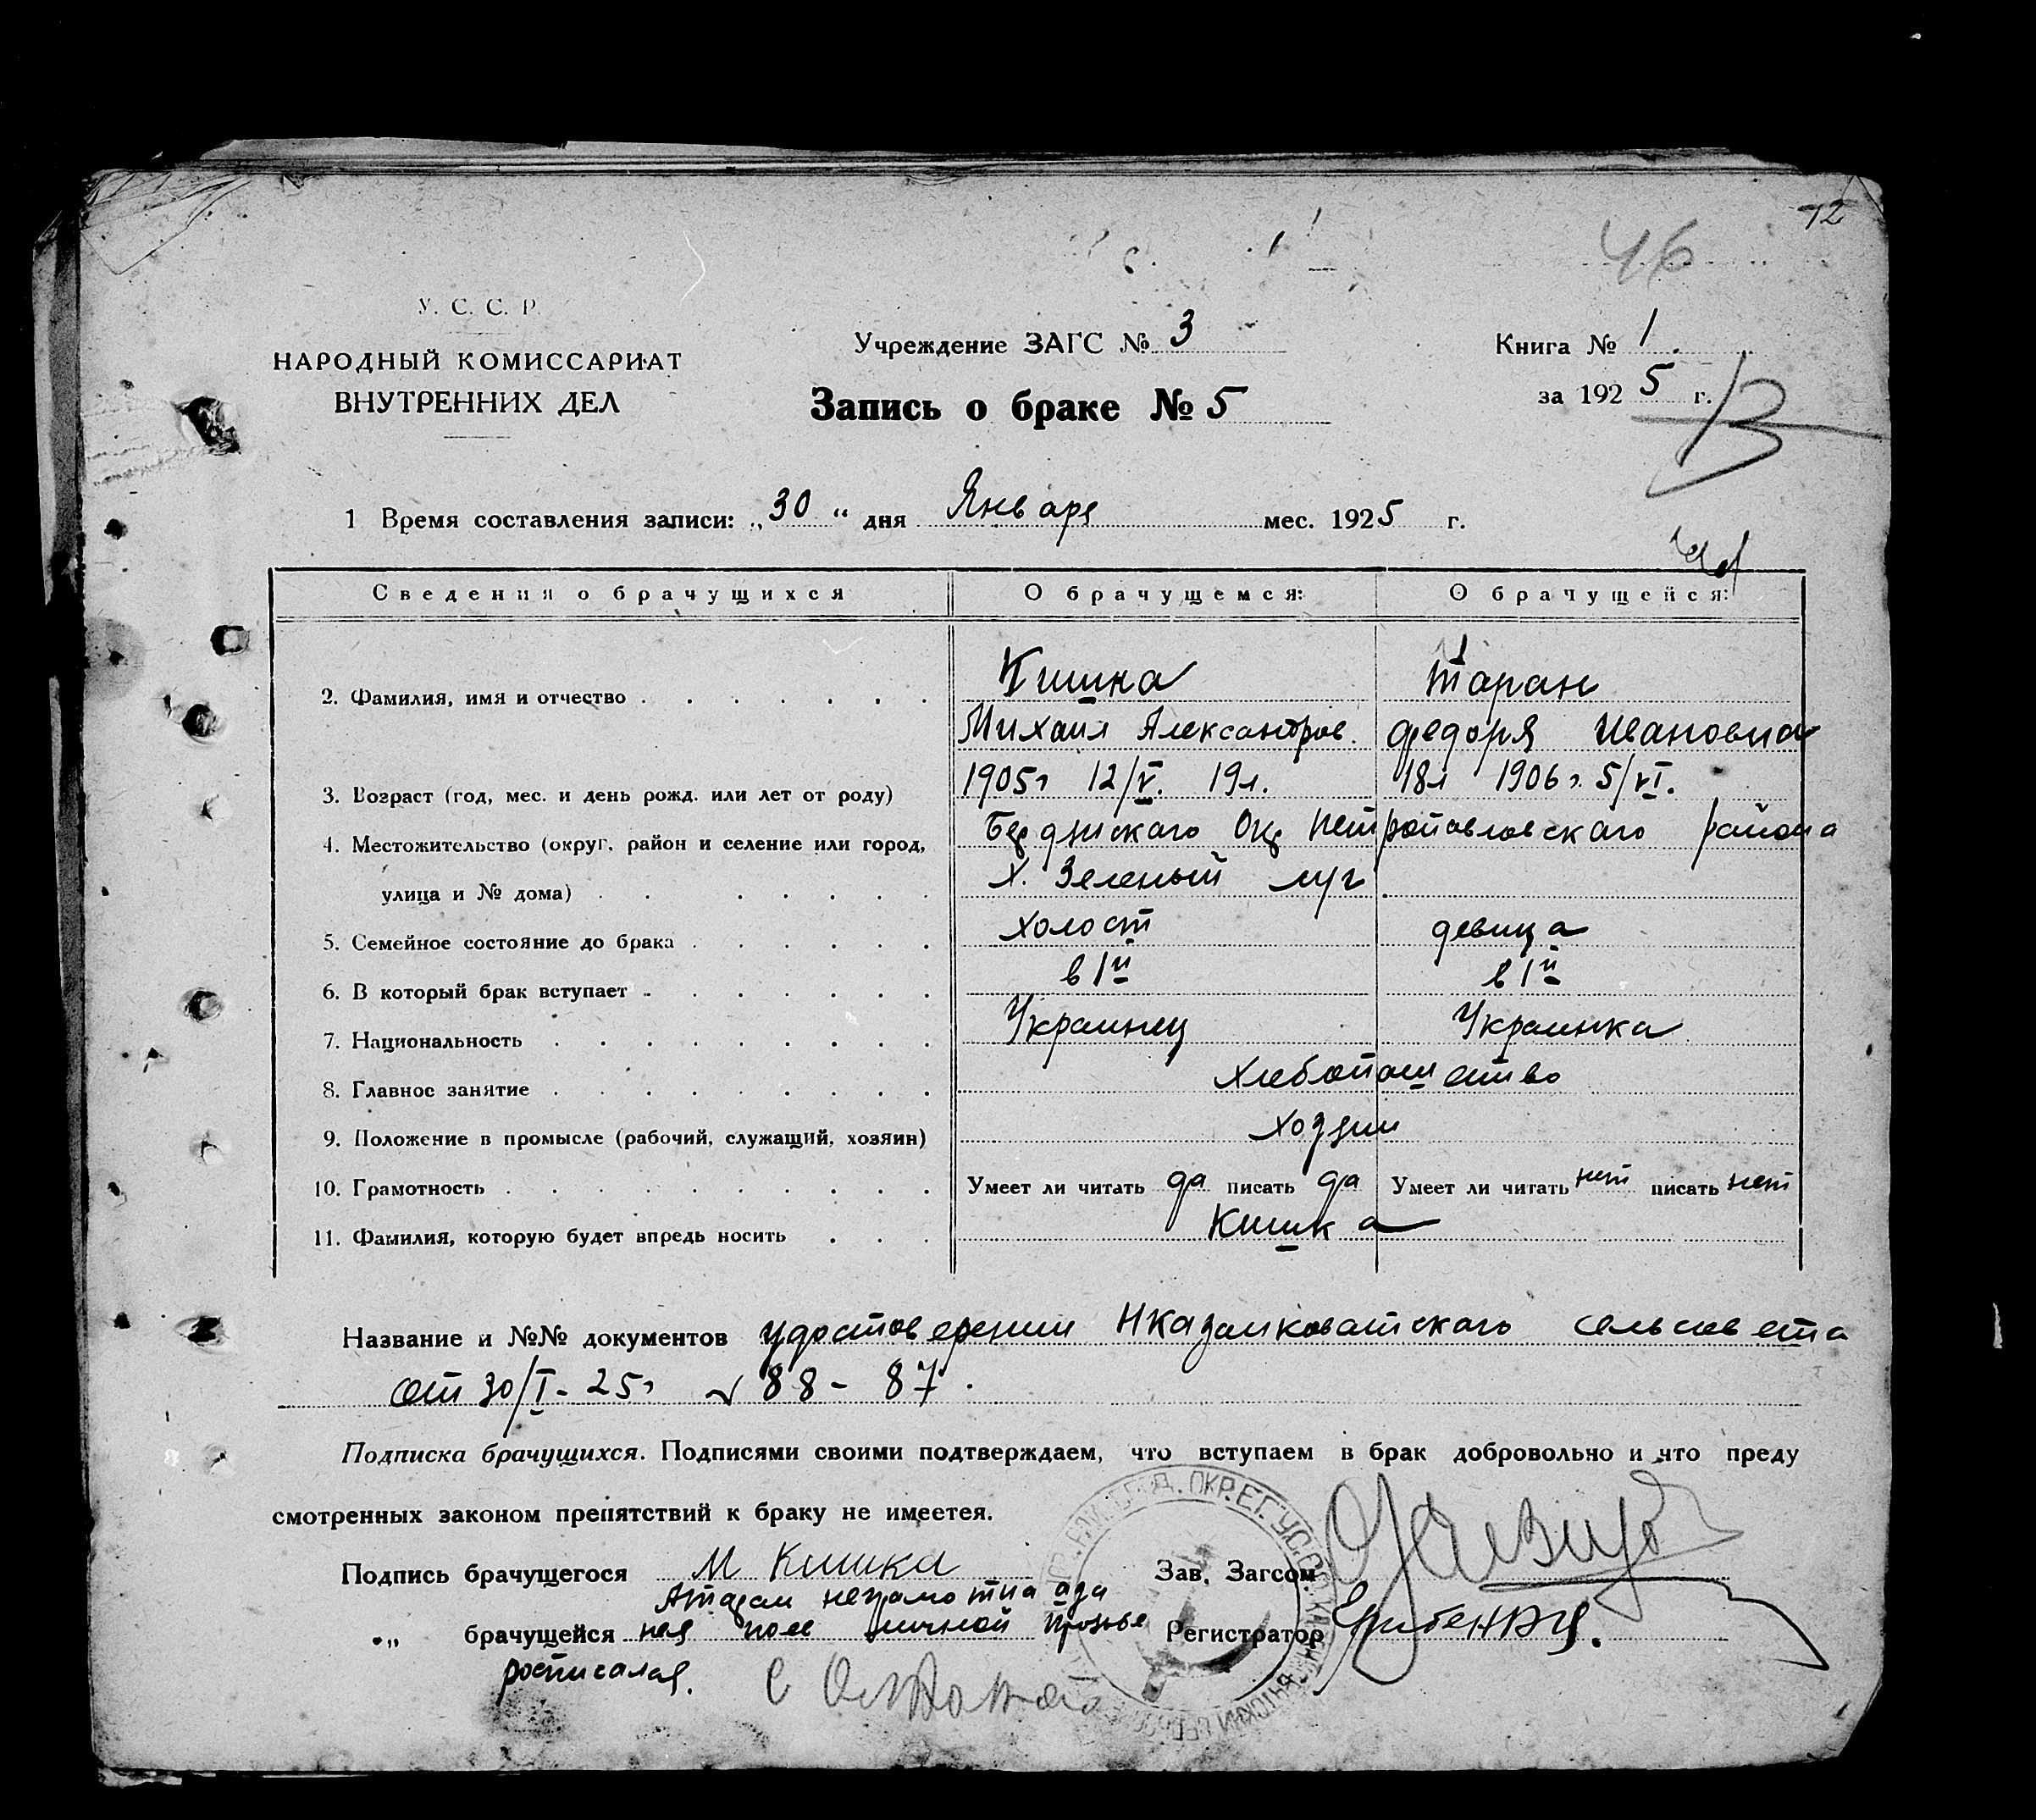 72
46
У. С. С. Р.
НАРОДНЫЙ КОМИССАРИАТ
ВНУТРЕННИХ ДЕЛ
Учреждение ЗАГС № 3
Запись о браке № 5
Книга № 1.
за 1925 г.
1 Время составления записи: „30“ дня Января мес. 1925 г.
Сведения о брачущихся О брачущемся: О брачущейся:
2. Фамилия, имя и отчество Кишка Таран
Михаил Александров. Федоря Ивановна
3. Возраст (год, мес. и день рожд. или лет от роду) 1905г 12/V. 19л. 18л 1906г. 5/VI.
4. Местожительство (округ, район и селение или город, Бердянского Окр Петропавловского района
улица и № дома) х. Зеленый луг
5. Семейное состояние до брака холост девица
6. В который брак вступает в 1й в 1й
7. Национальность Украинец Украинка
8. Главное занятие Хлебопашество
9. Положение в промысле (рабочий, служащий, хозяин) хозяин
10. Грамотность Умеет ли читать да писать да Умеет ли читать нет писать нет
11. Фамилия, которую будет впредь носить Кишка
Название и №№ документов удостоверении сельсовета
от 30/I-25г 88-87.
Подписка брачущихся. Подписями своими подтверждаем, что вступаем в брак добровольно и что преду
смотренных законом препятствий к браку не имеется.
Подпись брачущегося М Кишка Зав. Загсом
неграмотна а за
„ брачущейся нея по ее личной прозьбе Регистратор
росписался.